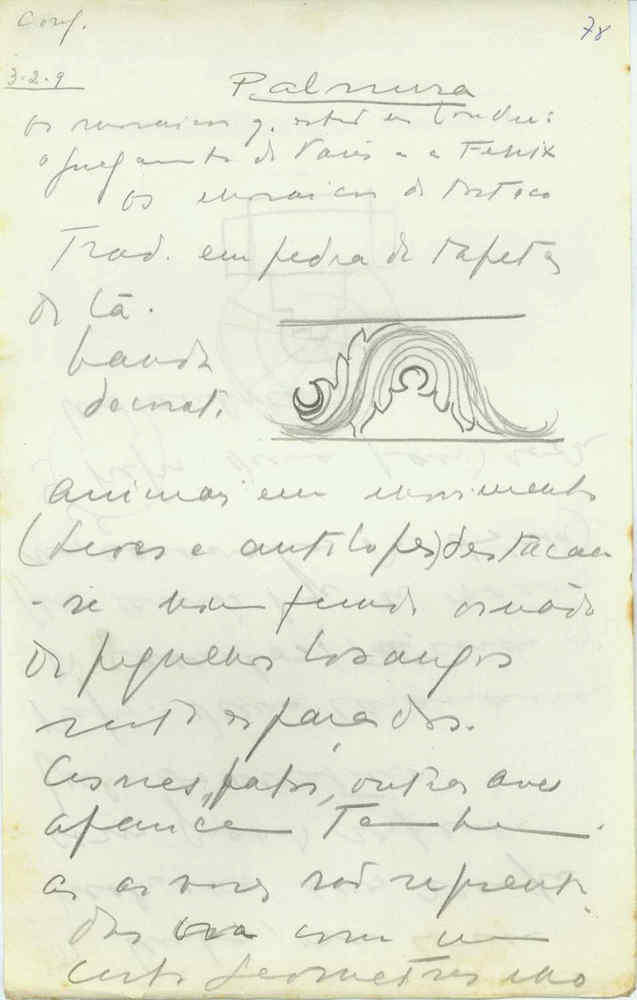 Conf. 78
3-2-9 Palmura
os mosaicos q. estão em Londres:
o julgamento de Paris e a Fenix
os mosaicos de
Trad. em pedra de tapetes
de lã.
banda
decorat.
animais em movimento
(Leões e antilopes) destacam
-se num fundo ornado
de pequenos losangos
muito espaçados.
Cisnes, patos, outras aves
aparecem Também.
as arvores são represent.
das ora com um
certo geometrismo